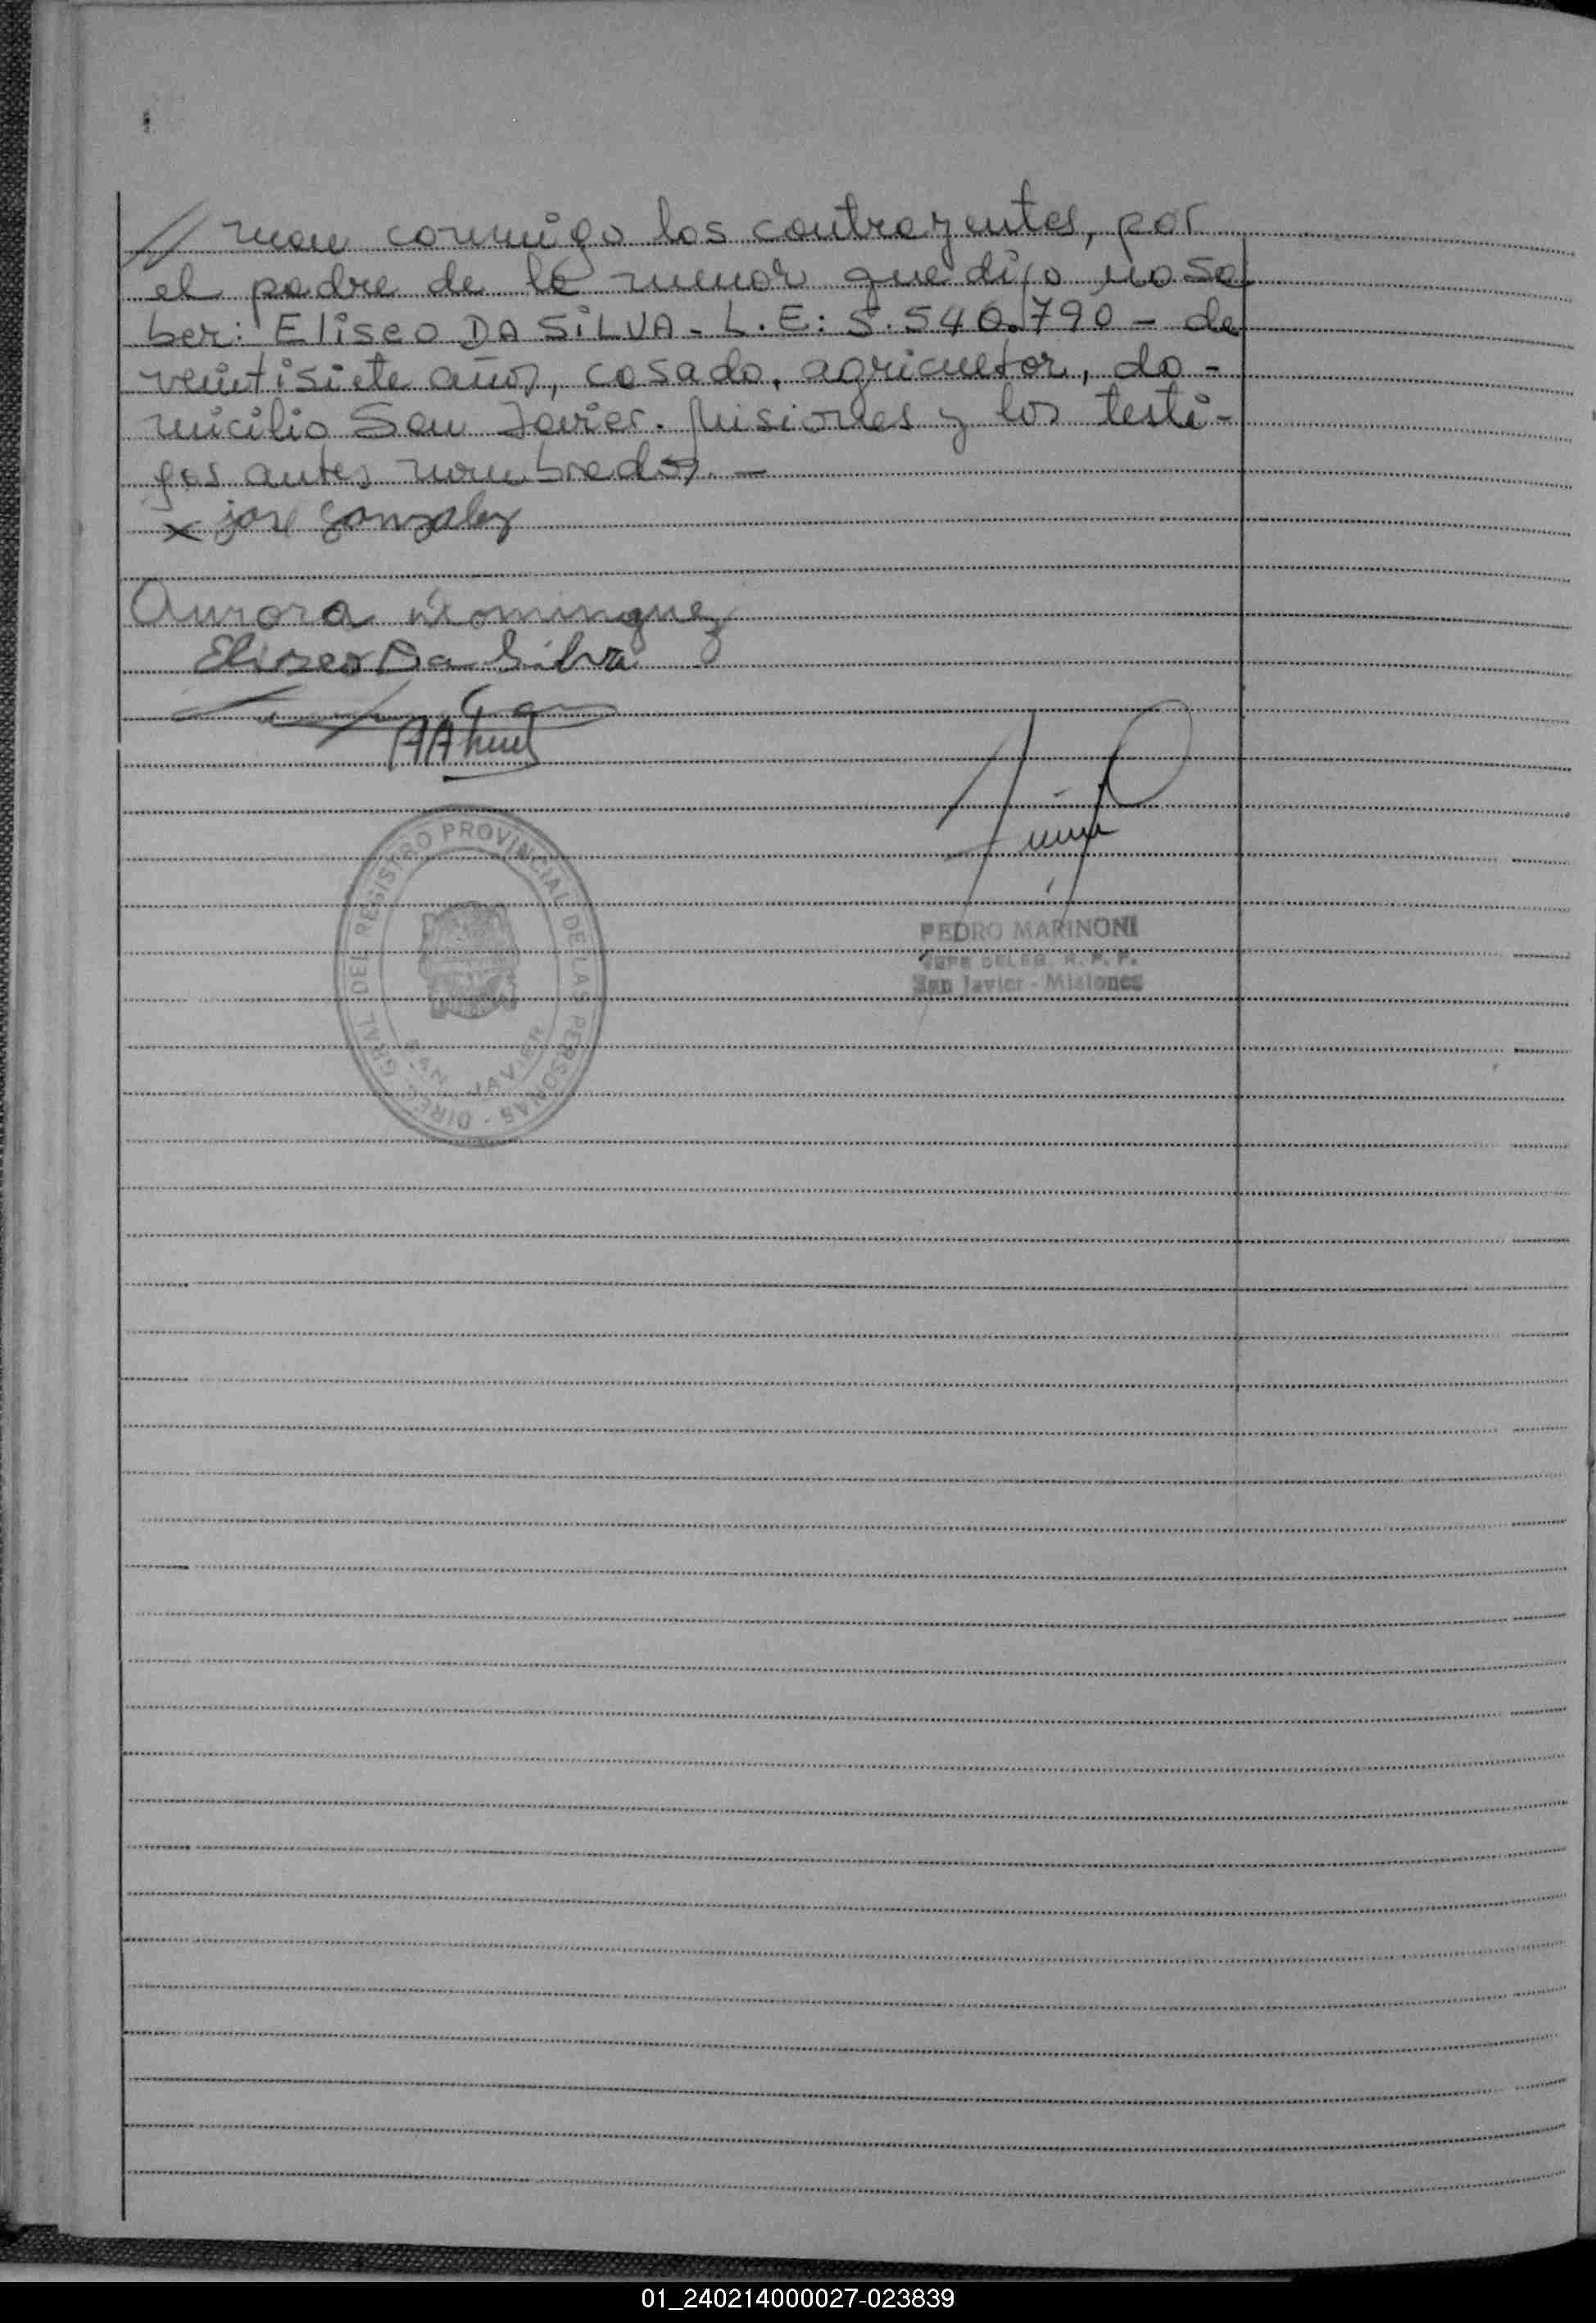 // man conmigo los contrayentes, por
el padre de la menor que dijo no sa
ber: Eliseo DA SILVA - L.E: 5.540.790 - de
veintisiete años, casado, agricultor, do -
micilio San Javier. Misiones y los testi -
gos antes nombrados. —
x jose gonzalez
Aurora Dominguez
Eliseo Da Silva
PEDRO MARINONI
JEFE DELEG. R. P. P.
San Javier - Misiones
DIREC. GRAL. DEL REGISTRO PROVINCIAL DE LAS PERSONAS -
SAN JAVIER
01_240214000027-023839